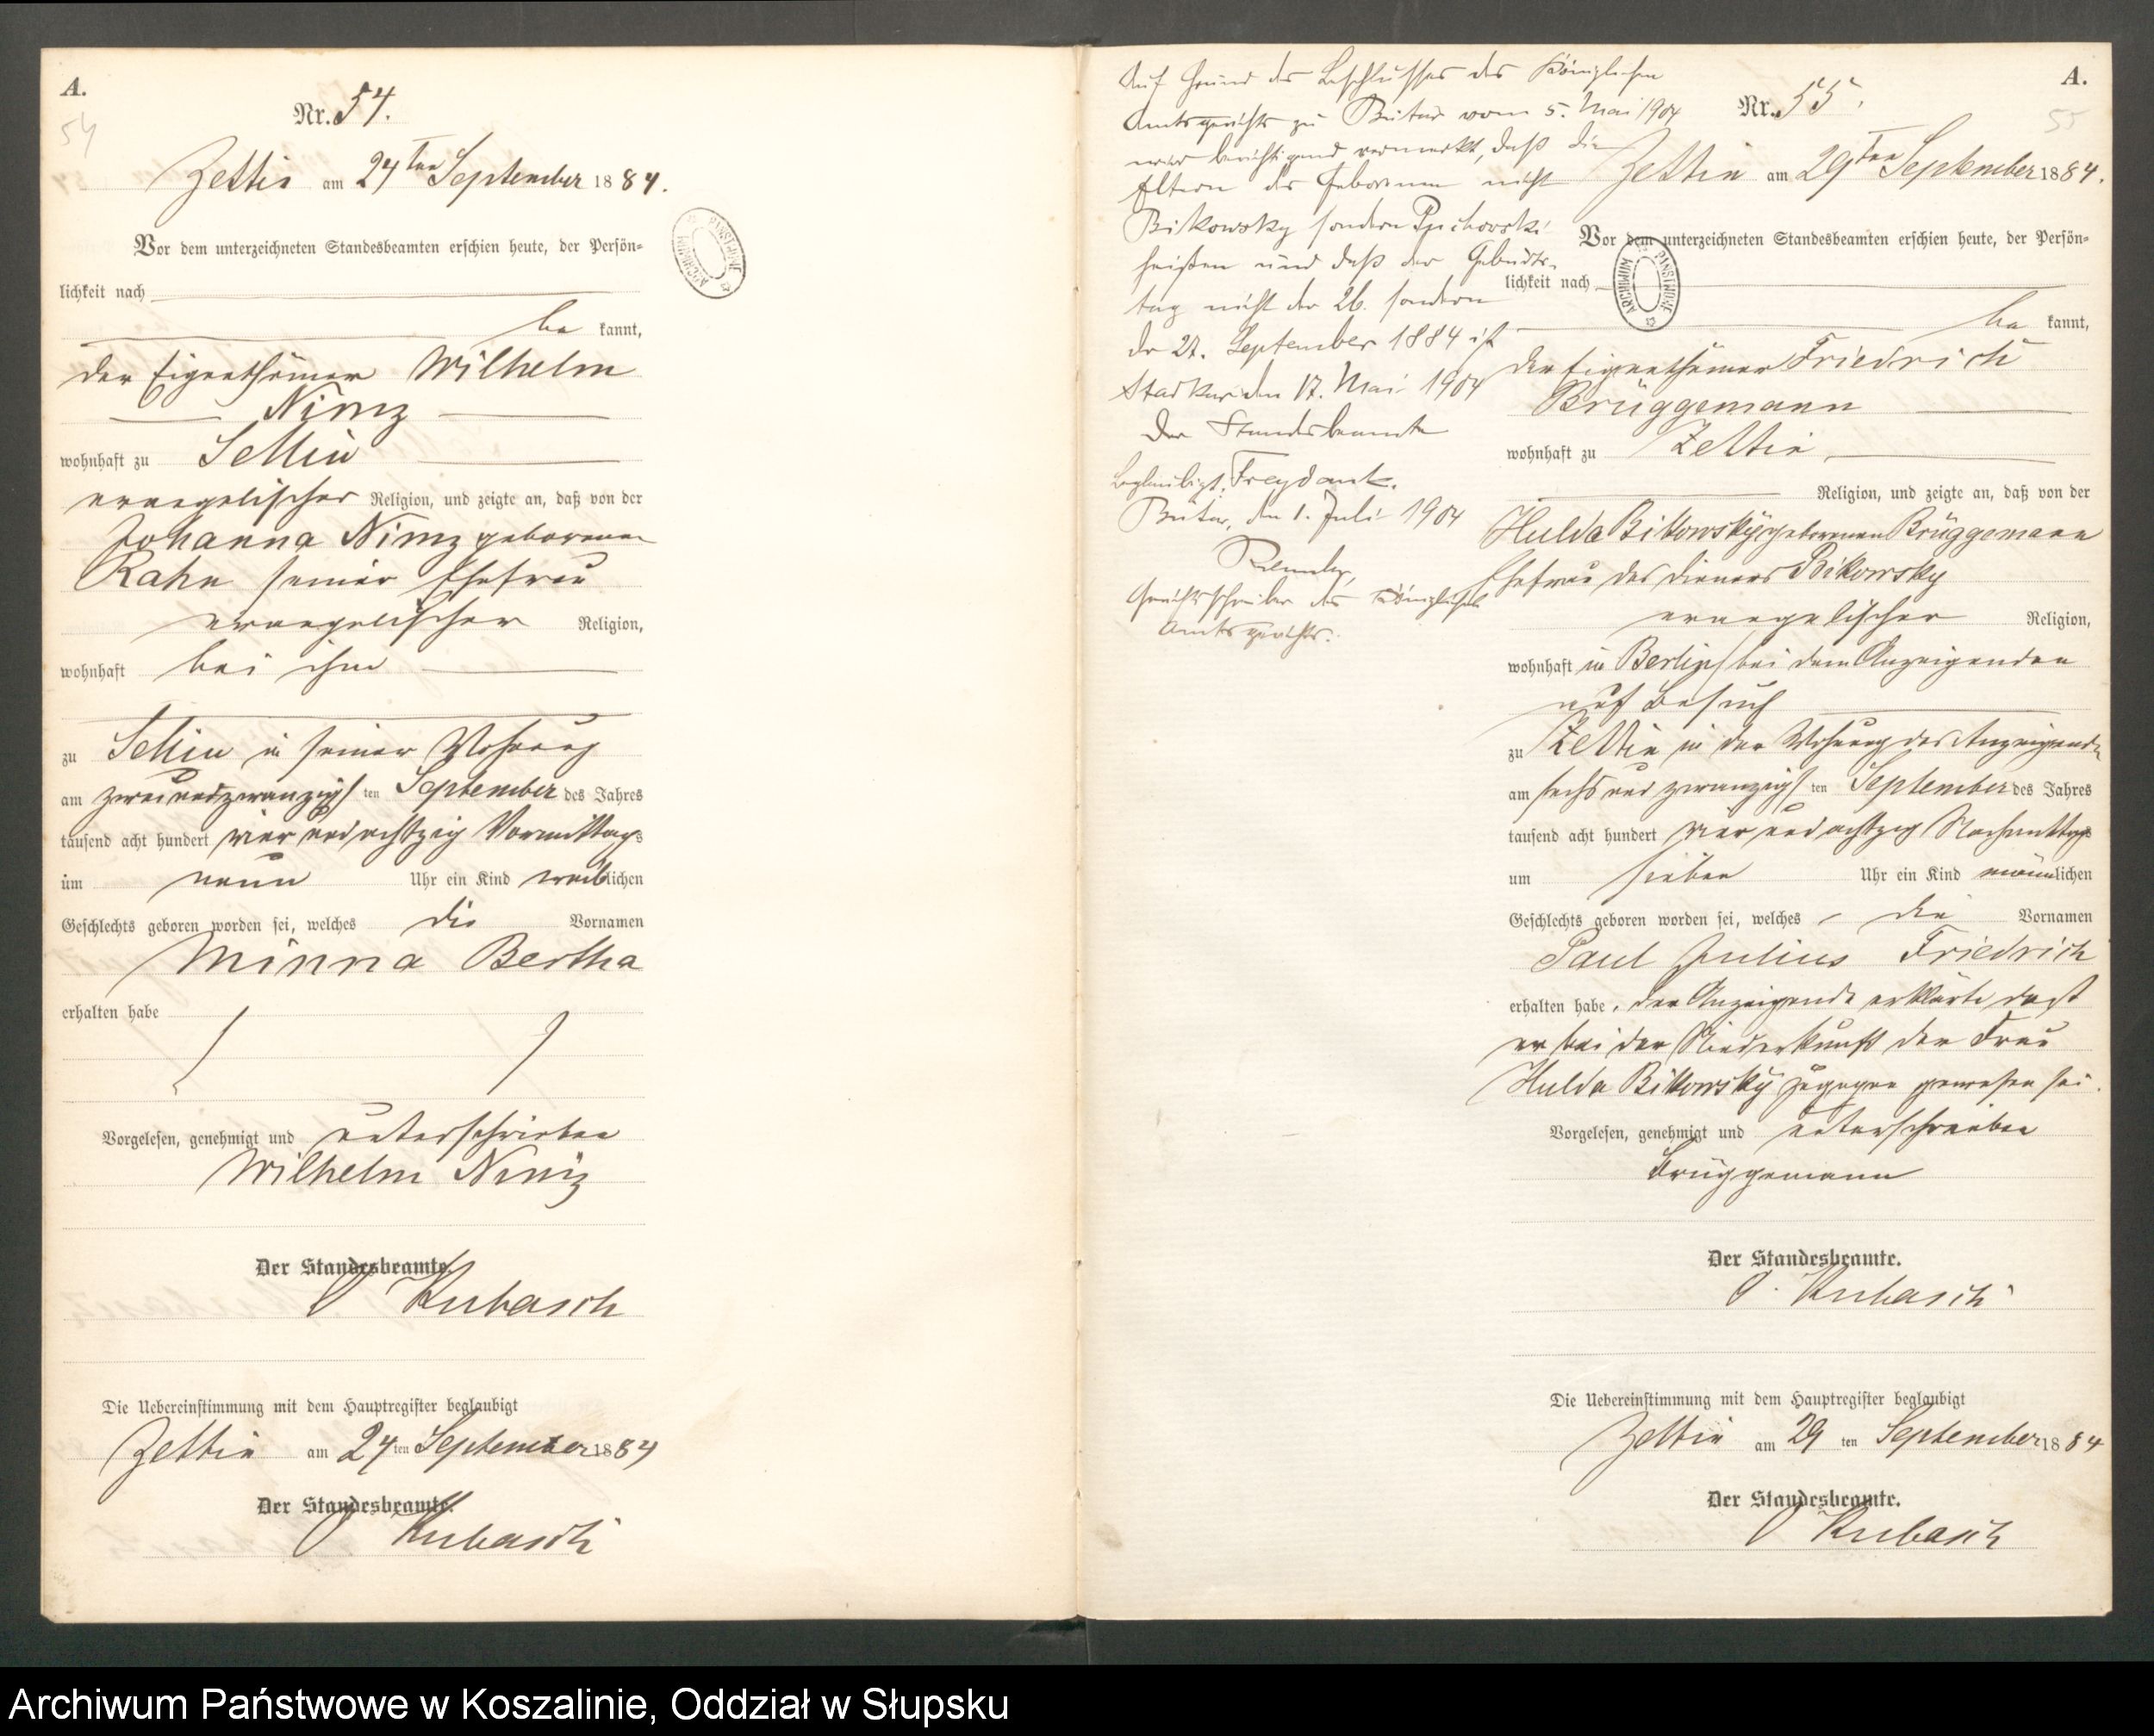 A.
54
Nr. 54.
Zettin am 24ten September 1884.
Vor dem unterzeichneten Standesbeamten erschien heute, der Persön-
lichkeit nach
be kannt,
der Eigenthümer Wilhelm
Nimz
wohnhaft zu Sellin
evangelischer Religion, und zeigte an, daß von der
Johanna Nimz geborenen
Rahn seiner Ehefrau
evangelischer Religion,
wohnhaft bei ihm
zu Sellin in seiner Wohnung
am zweiundzwanzigsten September des Jahres
tausend acht hundert vier und achtzig Vormittags
um neun Uhr ein Kind weiblichen
Geschlechts geboren worden sei, welches die Vornamen
Minna Bertha
erhalten habe
Vorgelesen, genehmigt und unterschrieben
Wilhelm Nimz
Der Standesbeamte.
Kubasch
Die Uebereinstimmung mit dem Hauptregister beglaubigt
Zettin am 24ten September 1884
Der Standesbeamte.
Kubasch
ARCHIWUM PAŃSTWOWE
Auf Grund des Beschlusses des Königlichen
Amtsgerichts zu Bütow vom 5. Mai 1904
wird berichtigend vermerkt, daß die
Eltern des Geborenen nicht
Bikowsky sondern
heißen und daß der Geburts-
tag nicht der 26. sondern
der 27. September 1884 ist
den 17. Mai 1904
Der Standesbeamte
Beglaubigt. Freydank.
Bütow, den 1. Juli 1904
Gerichtsschreiber des Königlichen
Amtsgerichts.
A.
55
Nr. 55.
Zettin am 29ten September 1884.
Vor dem unterzeichneten Standesbeamten erschien heute, der Persön-
lichkeit nach
ARCHIWUM PAŃSTWOWE
be kannt,
der Eigenthümer Friedrich
Brüggemann
wohnhaft zu Zettin
Religion, und zeigte an, daß von der
Hulda Bikowsky geborenen Brüggemann
Ehefrau des Dieners Bikowsky
evangelischer Religion,
wohnhaft in Berlin bei dem Anzeigenden
auf Besuch
zu Zettin in der Wohnung des Anzeigenden
am sechs und zwanzigsten September des Jahres
tausend acht hundert vier und achtzig Nachmittags
um sieben Uhr ein Kind männlichen
Geschlechts geboren worden sei, welches die Vornamen
Paul Julius Friedrich
erhalten habe, der Anzeigende erklärte dast
er bei der Niederkunft der Frau
Hulda Bikowsky zugegen gewesen sei.
Vorgelesen, genehmigt und unterschrieben
Brüggemann
Der Standesbeamte.
Kubasch
Die Uebereinstimmung mit dem Hauptregister beglaubigt
Zettin am 29 ten September 1884
Der Standesbeamte.
Kubasch
Archiwum Państwowe w Koszalinie, Oddział w Słupsku